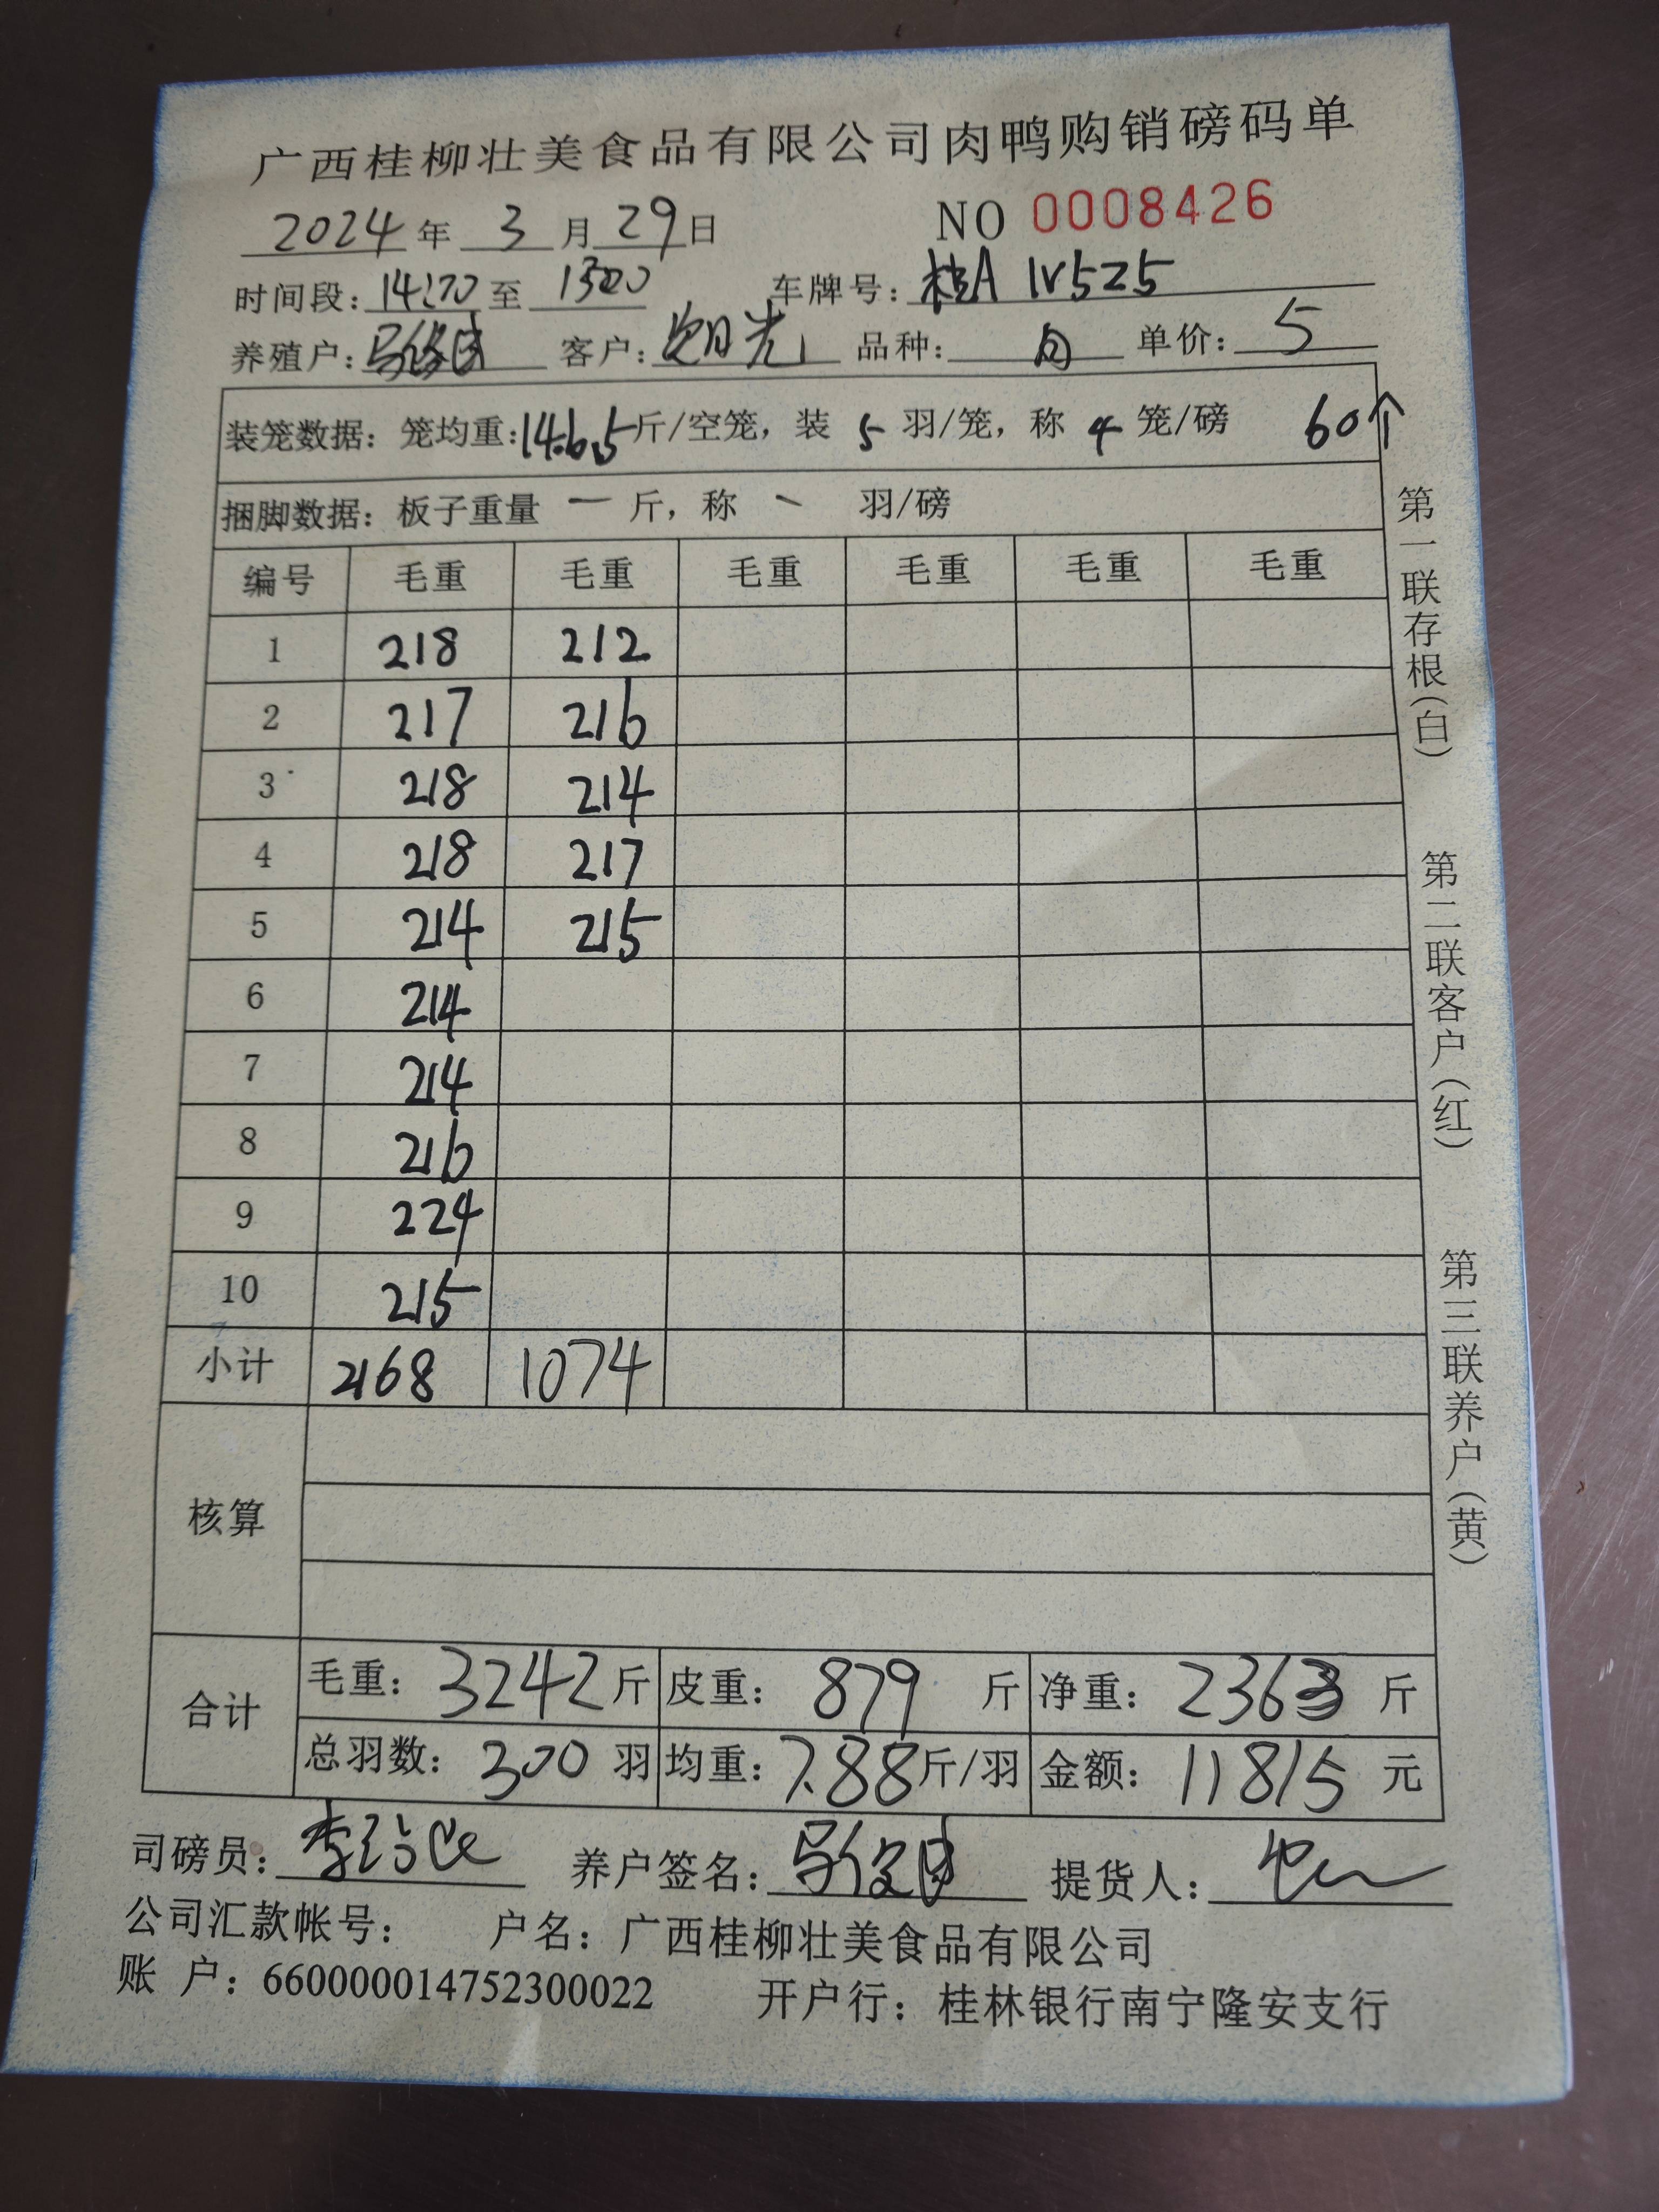 广西桂柳壮美食品有限公司肉鸭购销磅码单
2024年 3月29日 NO 0008426
时间段：14:20至 1500 车牌号：桂A 1V525
养殖户： 客户： 光 品种： 单价：5
装笼数据：笼均重：14.65斤/空笼，装 5 羽/笼，称 4 笼/磅 60个
捆脚数据：板子重量 一 斤，称 、 羽/磅
编号 毛重 毛重 毛重 毛重 毛重 毛重
1 218 212
2 217 216
3 218 214
4 218 217
5 214 215
6 214
7 214
8 216
9 224
10 215
小计 2168 1074
核算
合计 毛重：3242斤 皮重：879 斤 净重：2363 斤
总羽数：300 羽 均重：7.88斤/羽 金额：11815 元
司磅员：李 养户签名： 提货人：
公司汇款帐号： 户名：广西桂柳壮美食品有限公司
账 户：660000014752300022 开户行：桂林银行南宁隆安支行
第一联存根（白）
第二联客户（红）
第三联养户（黄）